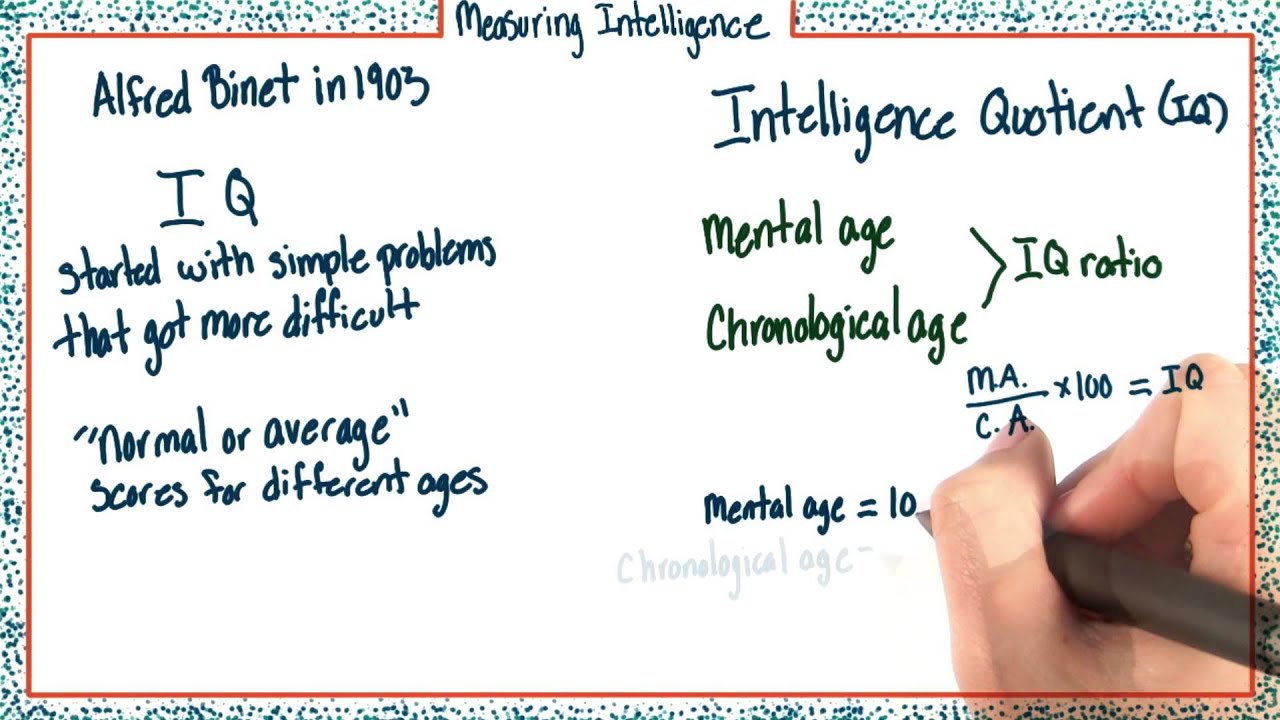 Measuring Intelligence
Alfred Binet in 1903
IQ
started with simple problems
that got more difficult
"Normal or average"
scores for different ages
Intelligence Quotient (IQ)
Mental age
Chronological age
> IQ ratio
M.A.
C.A.
x100 = IQ
Mental age = 10
Chronological age =